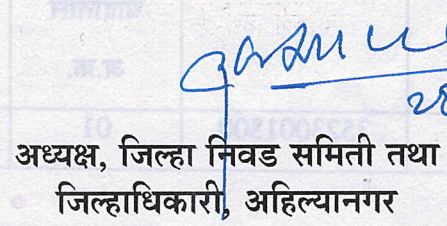 अध्यक्ष, जिल्हा निवड समिती तथा
जिल्हाधिकारी, अहिल्यानगर